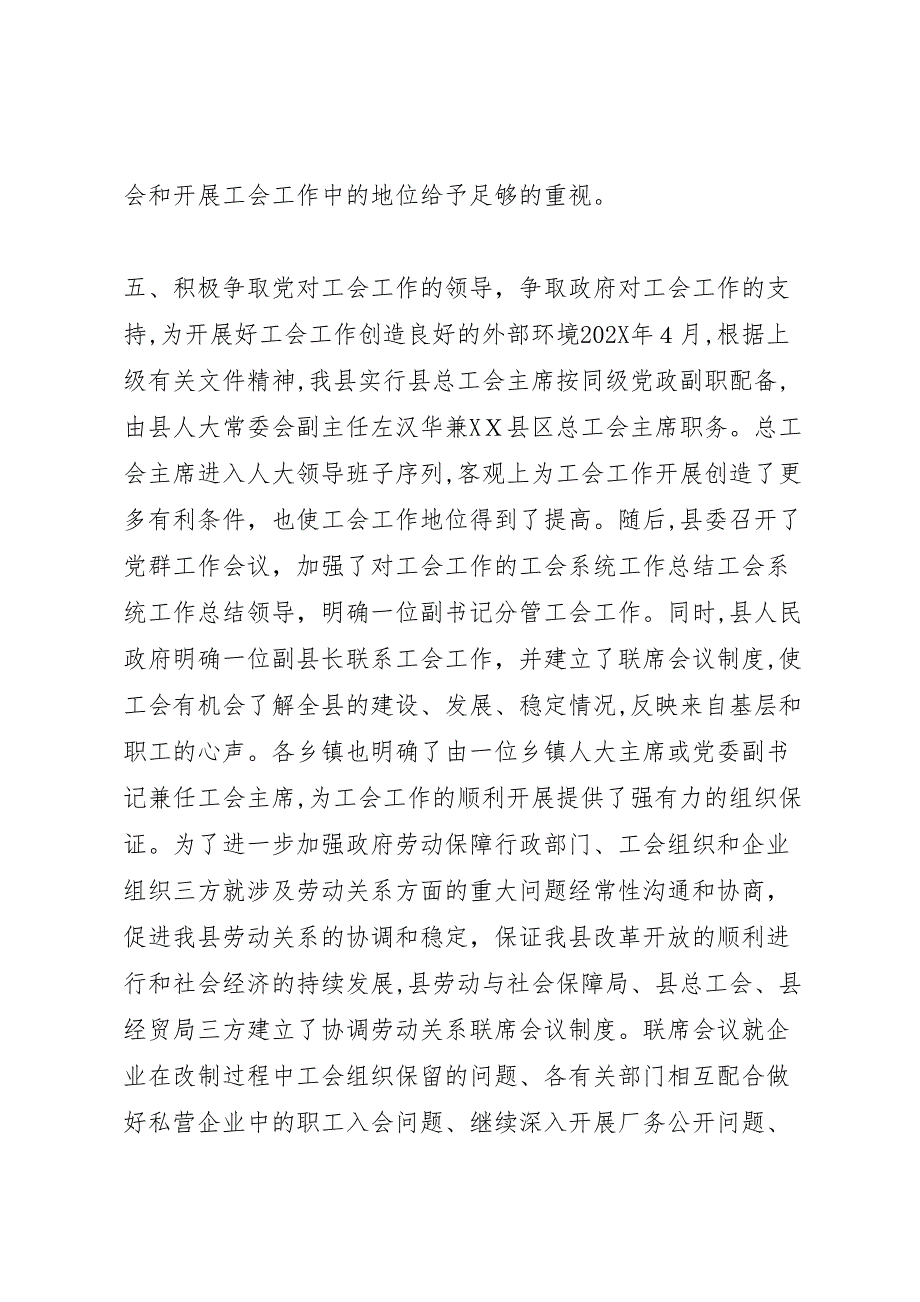 会和开展工会工作中的地位给予足够的重视。
五、积极争取党对工会工作的领导，争取政府对工会工作的支
持,为开展好工会工作创造良好的外部环境202X年４月,根据上
级有关文件精神,我县实行县总工会主席按同级党政副职配备，
由县人大常委会副主任左汉华兼XＸ县区总工会主席职务。总工
会主席进入人大领导班子序列,客观上为工会工作开展创造了更
多有利条件，也使工会工作地位得到了提高。随后,县委召开了
党群工作会议，加强了对工会工作的工会系统工作总结工会系
统工作总结领导，明确一位副书记分管工会工作。同时,县人民
政府明确一位副县长联系工会工作，并建立了联席会议制度,使
工会有机会了解全县的建设、发展、稳定情况,反映来自基层和
职工的心声。各乡镇也明确了由一位乡镇人大主席或党委副书
记兼任工会主席,为工会工作的顺利开展提供了强有力的组织保
证。为了进一步加强政府劳动保障行政部门、工会组织和企业
组织三方就涉及劳动关系方面的重大问题经常性沟通和协商，
促进我县劳动关系的协调和稳定，保证我县改革开放的顺利进
行和社会经济的持续发展,县劳动与社会保障局、县总工会、县
经贸局三方建立了协调劳动关系联席会议制度。联席会议就企
业在改制过程中工会组织保留的问题、各有关部门相互配合做
好私营企业中的职工入会问题、继续深入开展厂务公开问题、